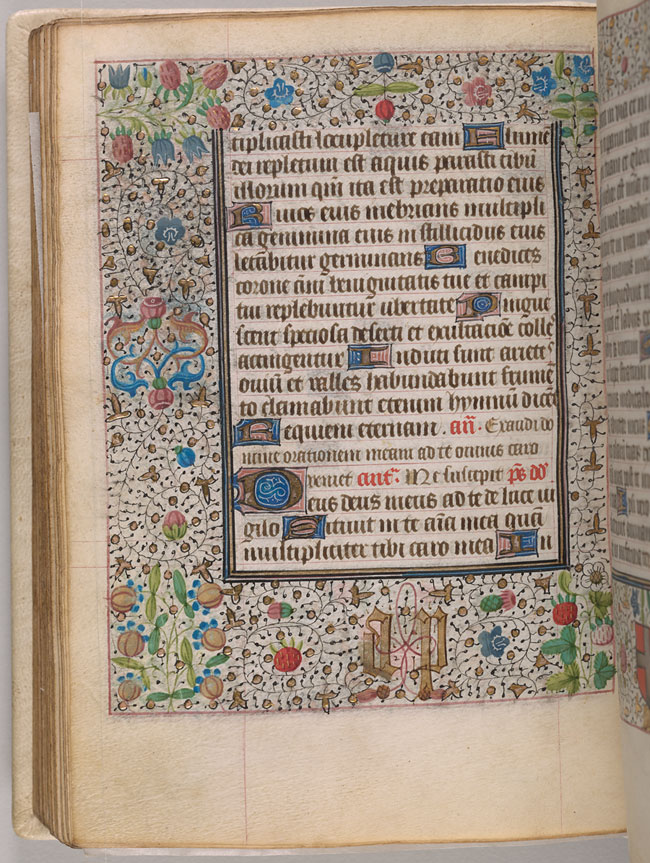 tiplicasti locupletare eam Flumē
dei repletum est aquis parasti cibū
illorum qm̄ ita est preparatio eius
Riuos eius inebrians multipli
ca genimina eius in stillicidiis eius
letabitur germinans Benedices
corone āni benignitatis tue et campi
tui replebuntur ubertate Pingue
scent speciosa deserti et exultacōe colle
accingentur Induti sunt ariets
ouiū et valles habundabunt frumē
to clamabunt etenim hymnū dicēt
Requiem eternam. añ. Exaudi do
mine orationem meam ad te omnis caro
veniet ant̄. Me suscepit p̄s dd̄
Deus deus meus ad te de luce ui
gilo Sitiuit in te aīa mea quā
multipliciter tibi caro mea In